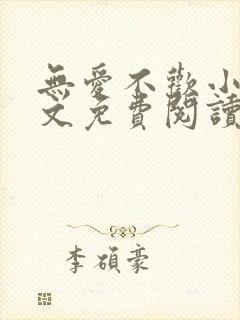 無愛不歡小
文免費閱讀
李碩豪